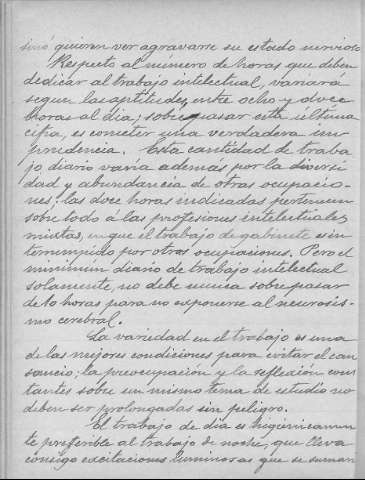 sinó quieren ver agravarse su estado nervioso
Respecto al número de horas que deben
dedicar al trabajo intelectual, variará
segun las aptitudes, entre ocho y doce
horas al dia; sobrepasar esta última
cifra, es cometer una verdadera im
prudencia. Esta cantidad de traba
jo diario varia además por la diversi
dad y abundancia de otras ocupacio-
nes; las doce horas indicadas pertenecen
sobre todo á las profesiones intelectuales
mixtas, en que el trabajo de gabinete es in
terrumpido por otras ocupaciones. Pero el
minimum diario de trabajo intelectual
solamente, no debe nunca sobrepasar
de 10 horas para no exponerse al neurosis-
mo cerebral.
La variedad en el trabajo es una
de las mejores condiciones para evitar el can
sancio; la preocupación y la reflexión cons
tantes sobre un mismo tema de estudio no
deben ser prolongadas sin peligro.
El trabajo de dia es higiénicamen
te preferible al trabajo de noche, que lleva
consigo excitaciones luminosas que se suman